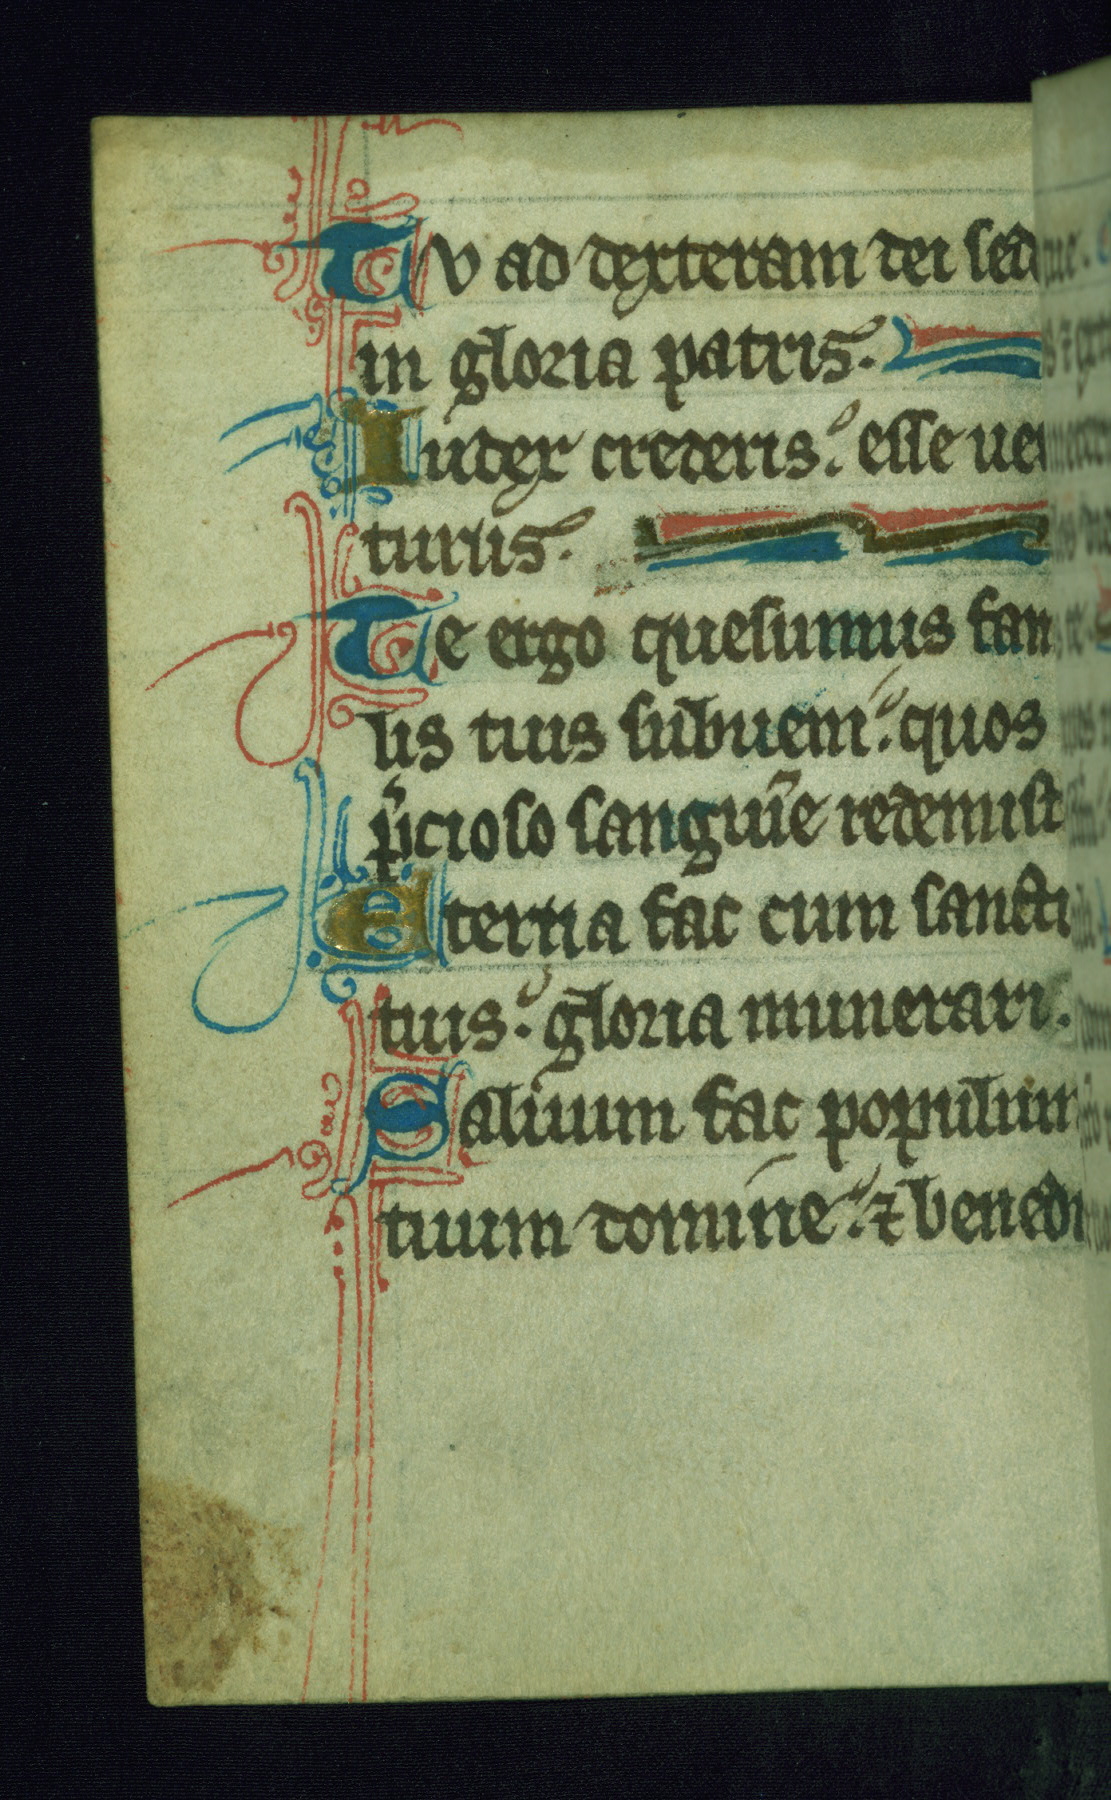 Tu ad dexteram dei sed
in gloria patris.
Iudex crederis. esse uen
turus.
Te ergo quesumus fam
lis tuis subueni. quos
p̍cioso sanguīe redemist
Eterna fac cum sancti
tuis. gloria munerari.
Saluum fac populum
tuum domine. ⁊ benedi